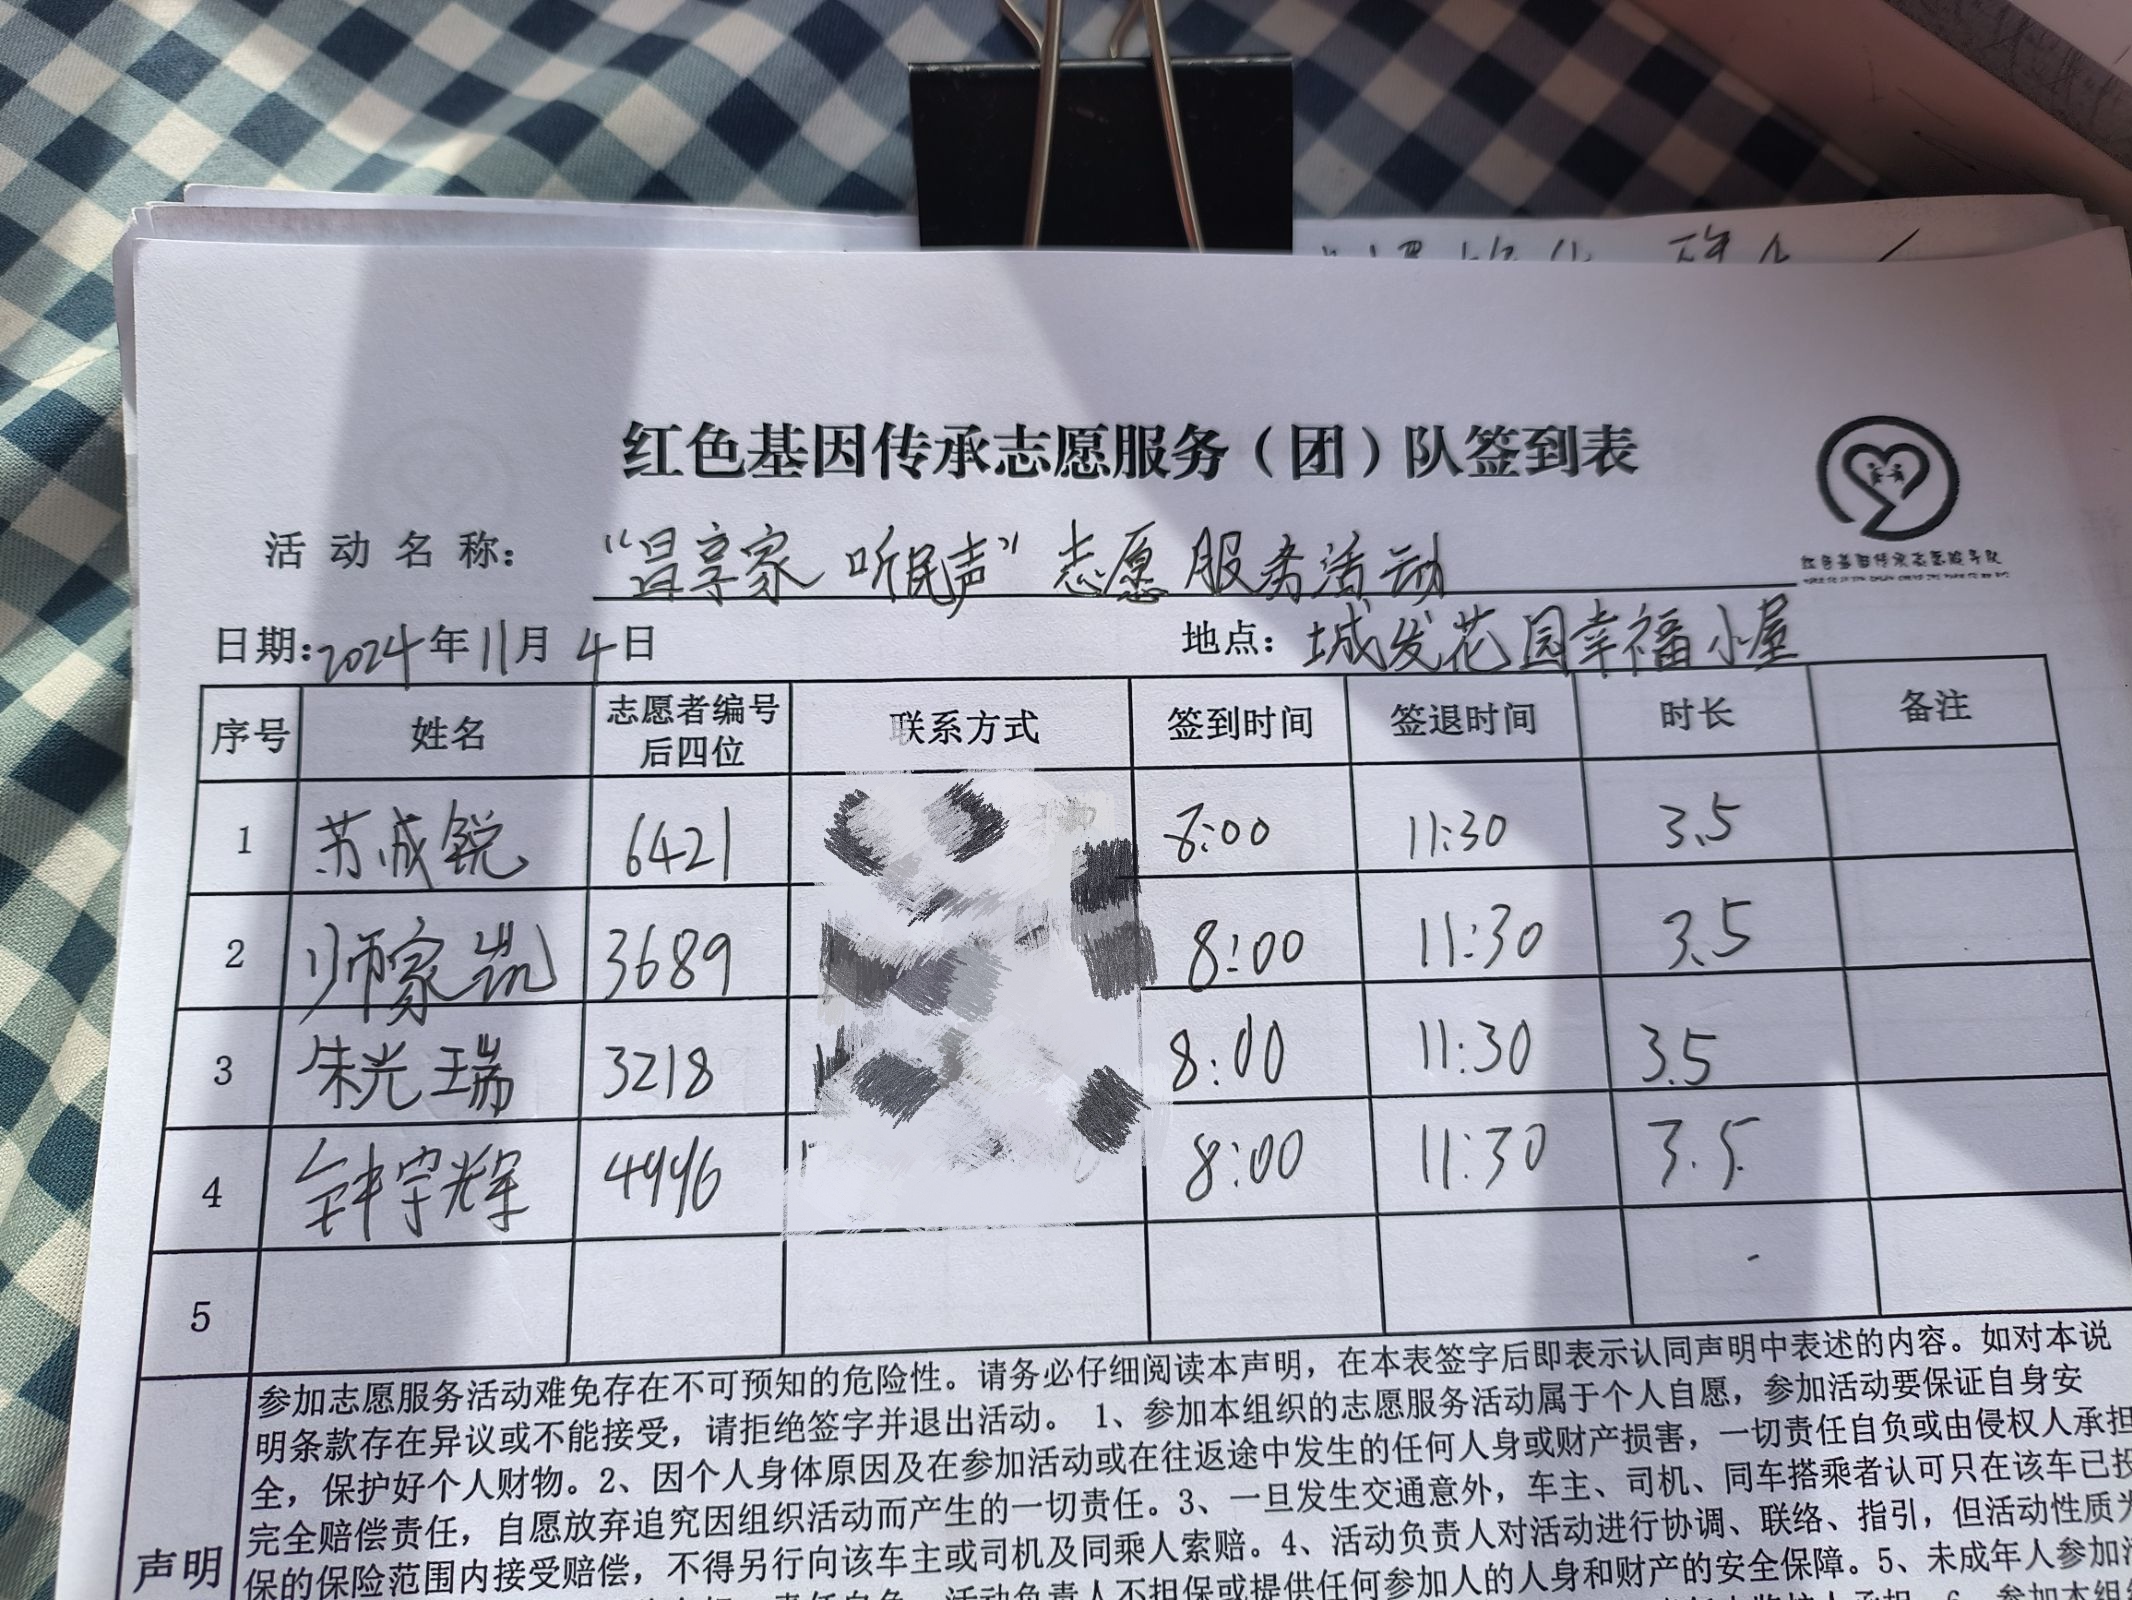 红色基因传承志愿服务（团）队签到表
红色基因传承志愿服务队
活动名称：“昌享家 听民声”志愿服务活动
日期：2024年11月4日 地点：城发花园幸福小屋
序号 姓名 志愿者编号后四位 联系方式 签到时间 签退时间 时长 备注
1 苏成锐 6421 8:00 11:30 3.5
2 师家凯 3689 8:00 11:30 3.5
3 朱光瑞 3218 8:00 11:30 3.5
4 钟宇辉 4996 8:00 11:30 3.5
5
声明
参加志愿服务活动难免存在不可预知的危险性。请务必仔细阅读本声明，在本表签字后即表示认同声明中表述的内容。如对本说
明条款存在异议或不能接受，请拒绝签字并退出活动。 1、参加本组织的志愿服务活动属于个人自愿，参加活动要保证自身安
全，保护好个人财物。2、因个人身体原因及在参加活动或在往返途中发生的任何人身或财产损害，一切责任自负或由侵权人承担
完全赔偿责任，自愿放弃追究因组织活动而产生的一切责任。3、一旦发生交通意外，车主、司机、同车搭乘者认可只在该车已投
保的保险范围内接受赔偿，不得另行向该车主或司机及同乘人索赔。4、活动负责人对活动进行协调、联络、指引，但活动性质为
责任自负，活动负责人不担保或提供任何参加人的人身和财产的安全保障。5、未成年人参加活
6、参加本组